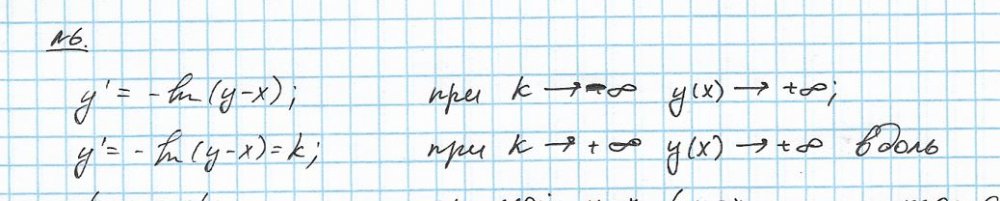 №6.
y' = -ln(y-x); при k → -∞ y(x) → +∞;
y' = -ln(y-x) = k; при k → +∞ y(x) → +∞ вдоль